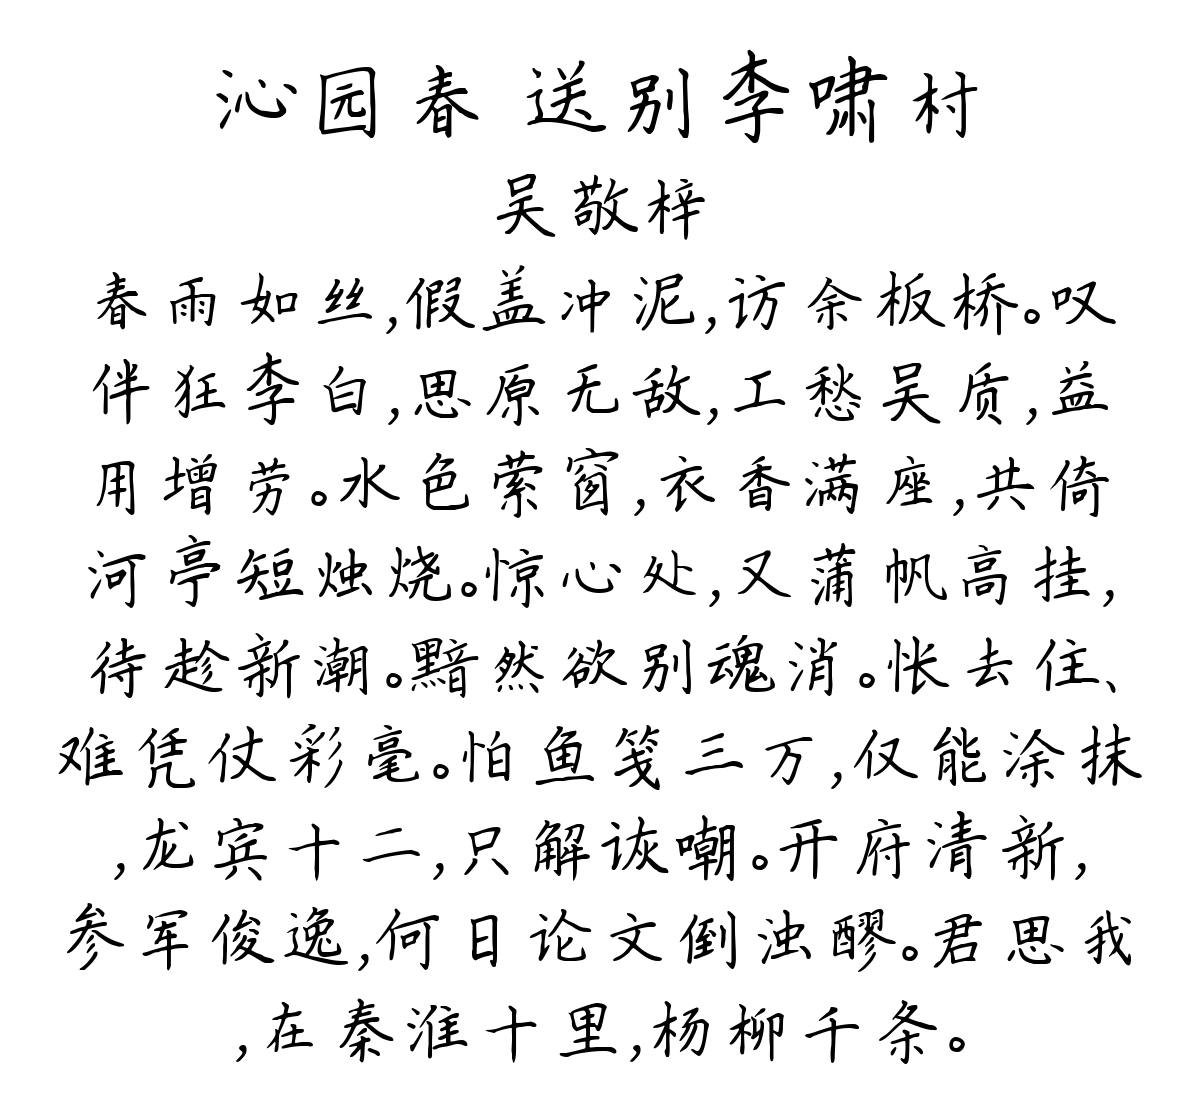 沁园春 送别李啸村
吴敬梓
春雨如丝,假盖冲泥,访余板桥。叹
伴狂李白,思原无敌,工愁吴质,益
用增劳。水色萦窗,衣香满座,共倚
河亭短烛烧。惊心处,又蒲帆高挂,
待趁新潮。黯然欲别魂消。怅去住、
难凭仗彩毫。怕鱼笺三万,仅能涂抹
,龙宾十二,只解诙嘲。开府清新,
参军俊逸,何日论文倒浊醪。君思我
,在秦淮十里,杨柳千条。